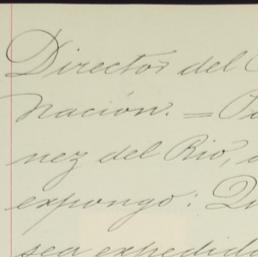 Director del
Nación. =
nez del Rio,
expongo: Qu
sea expedida